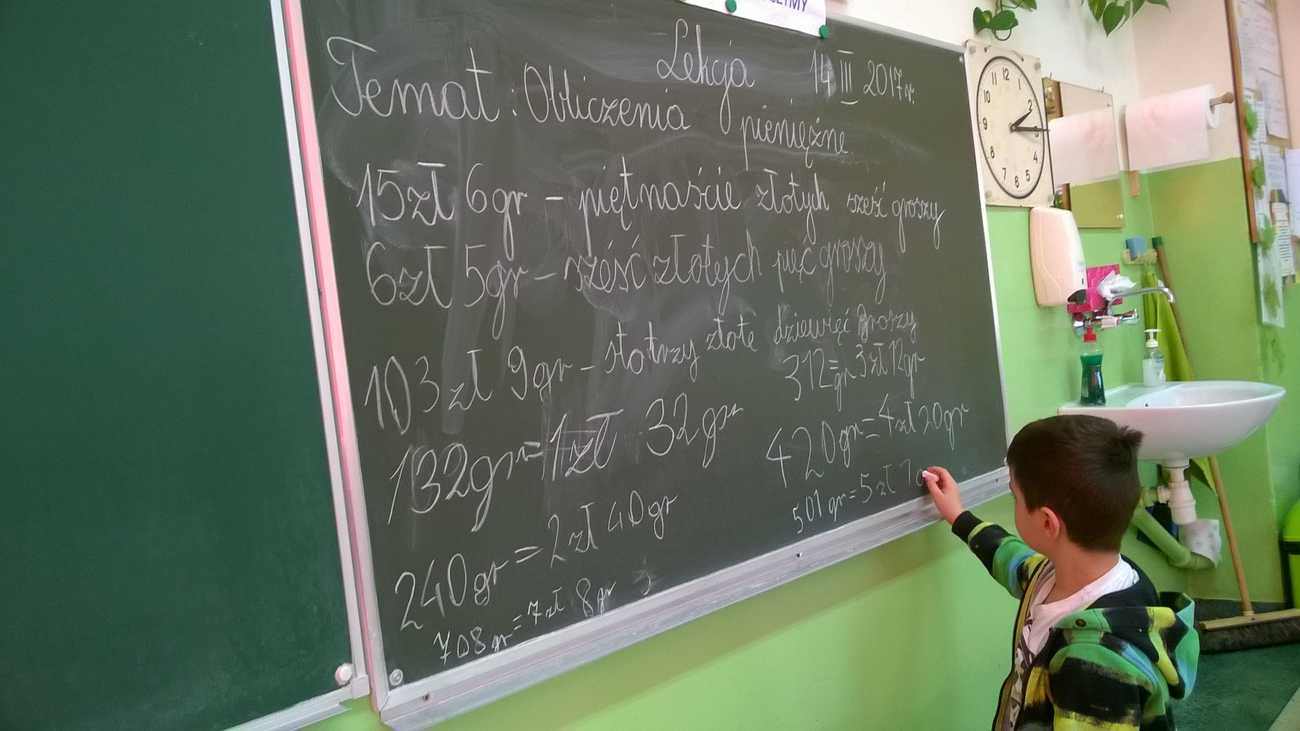 Lekcja 14 III 2017r.
Temat: Obliczenia pieniężne
15zł 6gr - piętnaście złotych sześć groszy
6zł 5gr - sześć złotych pięć groszy
103zł 9gr - sto trzy złote dziewięć groszy
132gr = 1zł 32gr
240gr = 2zł 40gr
708gr = 7zł 8gr
312gr = 3zł 12gr
420gr = 4zł 20gr
501gr = 5zł 1
12
1
2
3
4
5
6
7
8
9
10
11